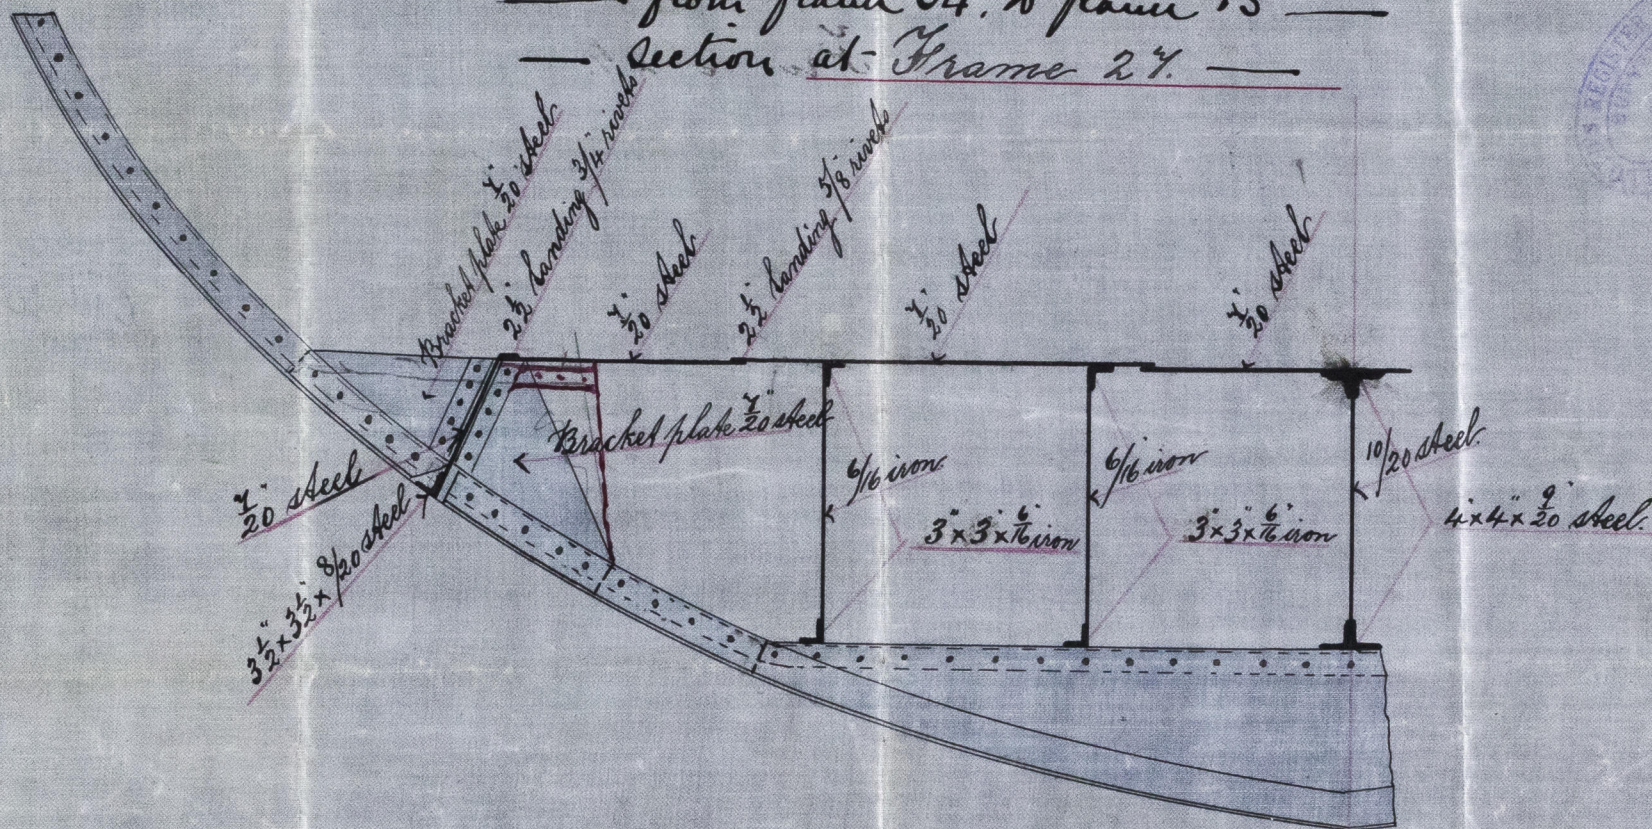 from frame 34. to frame 13
section at Frame 27.
Bracket plate 7/20" steel
2 1/2" landing 3/4" rivets
7/20" steel
2 1/2" landing 5/8" rivets
7/20" steel
7/20" steel
Bracket plate 7/20" steel
7/20" steel
3 1/2" x 3 1/2" x 8/20 steel
6/16 iron
3" x 3" x 6/16" iron
6/16 iron
3" x 3" x 6/16" iron
10/20 steel
4" x 4" x 9/20" steel.
REGISTER